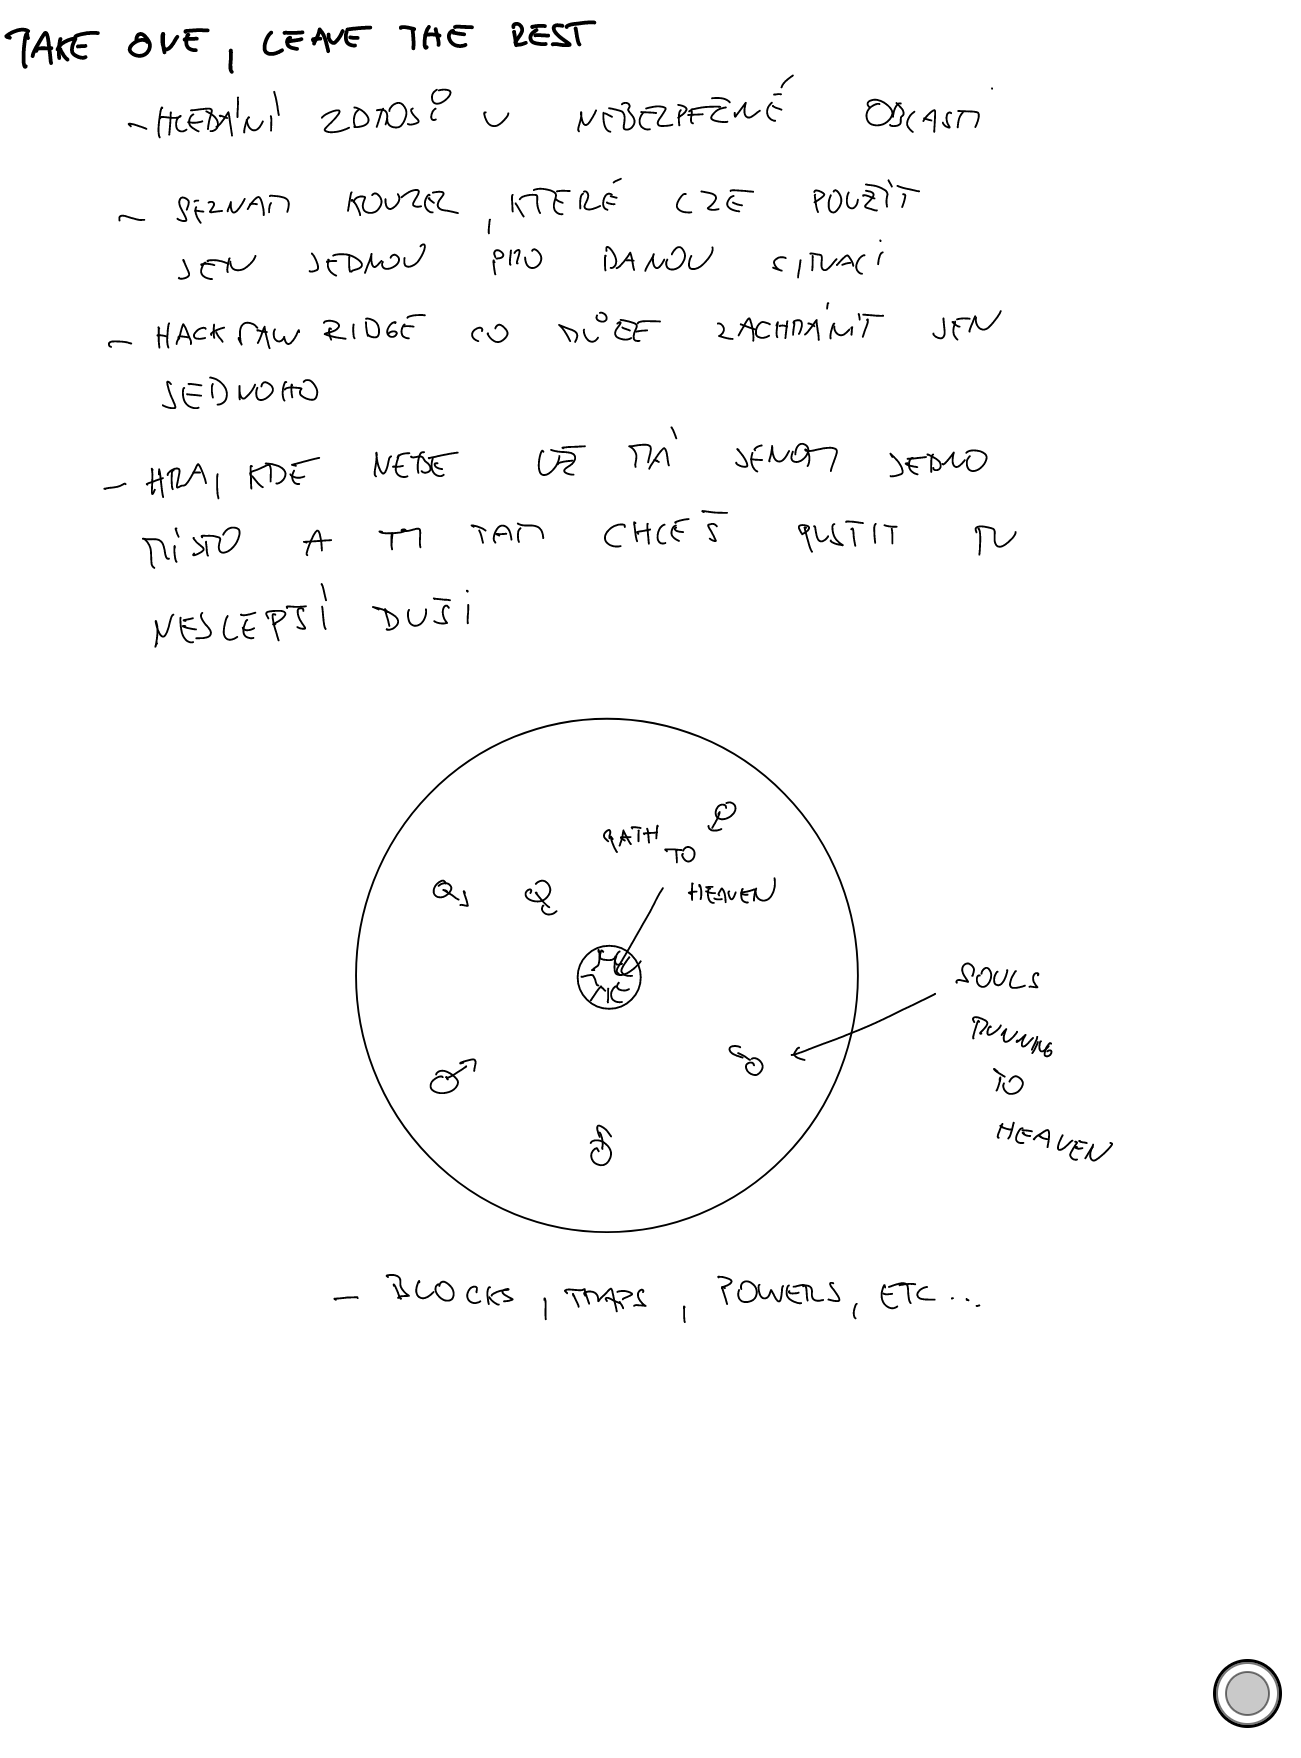 TAKE ONE, LEAVE THE REST
- HLEDÁNÍ ZDROJŮ V NEBEZPEČNÉ OBLASTI
- SEZNAM KOUZEL, KTERÉ LZE POUŽÍT
JEN JEDNOU PRO DANOU SITUACI
- HACKSAW RIDGE CO MŮŽE ZACHRÁNIT JEN
JEDNOHO
- HRA, KDE NEBE UŽ MÁ JENOM JEDNO
MÍSTO A TY TAM CHCEŠ PUSTIT TU
NEJLEPŠÍ DUŠI
PATH
TO
HEAVEN
SOULS
RUNNING
TO
HEAVEN
- BLOCKS, TRAPS, POWERS, ETC...